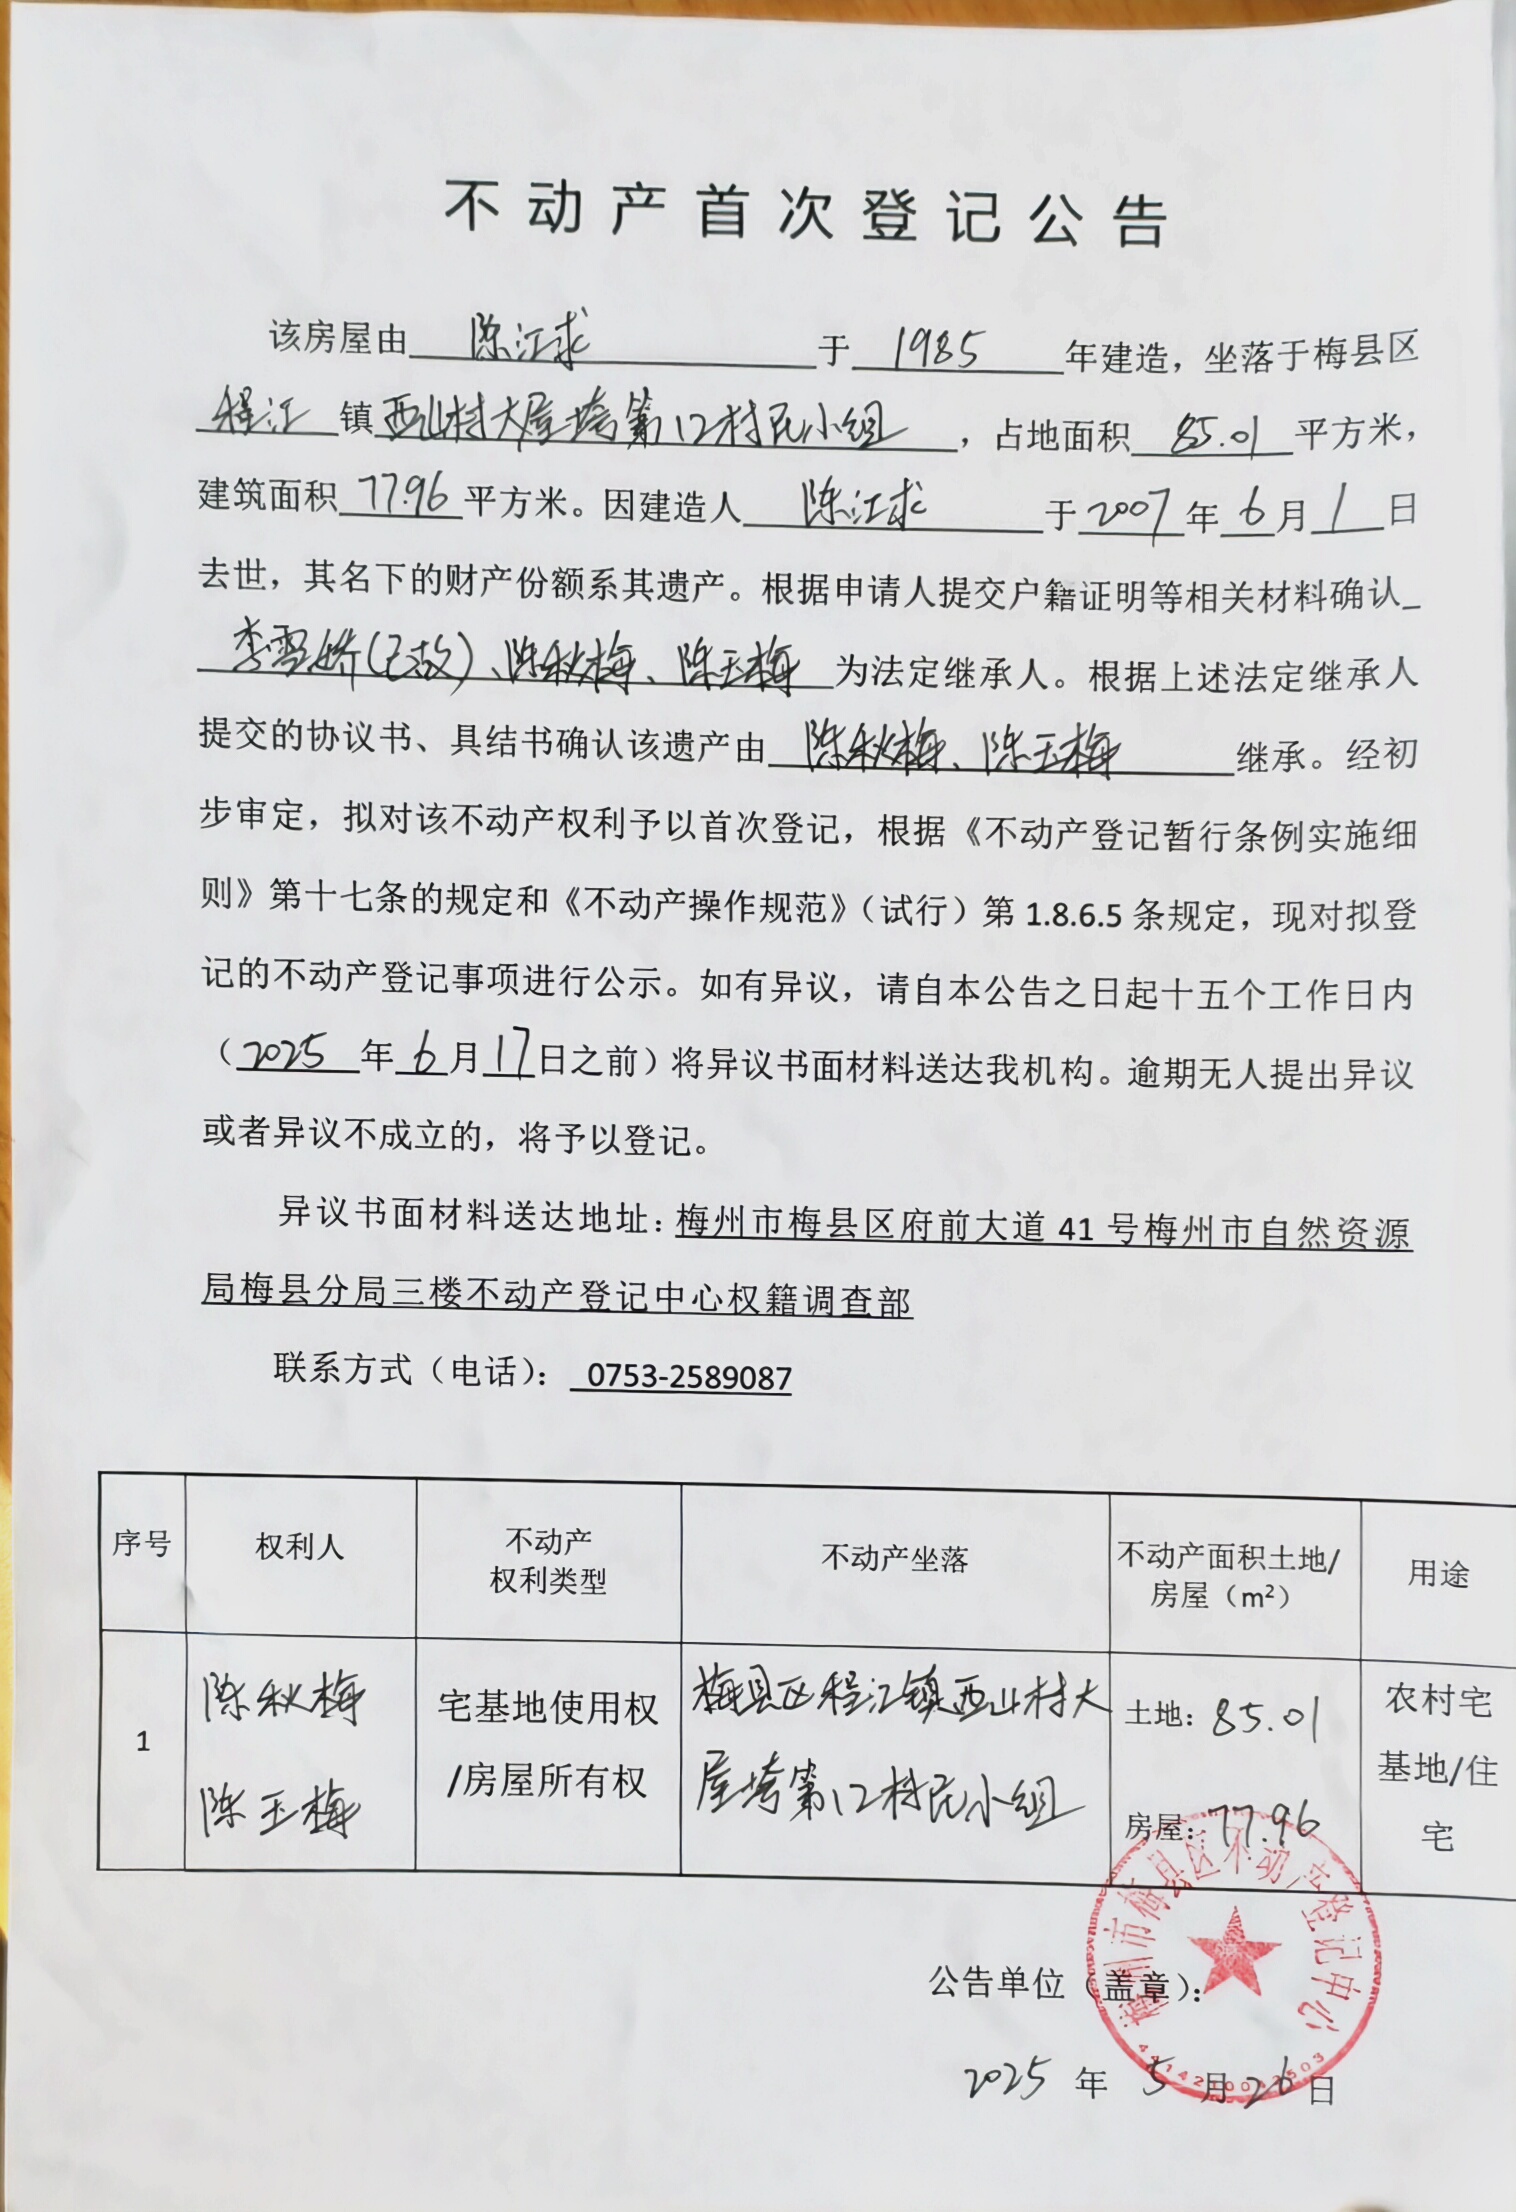 不动产首次登记公告
该房屋由 陈江求 于 1985 年建造，坐落于梅县区
程江 镇 西山村大屋塆第12村民小组 ，占地面积 85.01 平方米，
建筑面积 77.96 平方米。因建造人 陈江求 于 2007 年 6 月 1 日
去世，其名下的财产份额系其遗产。根据申请人提交户籍证明等相关材料确认
李雪娇(已故)、陈秋梅、陈玉梅 为法定继承人。根据上述法定继承人
提交的协议书、具结书确认该遗产由 陈秋梅、陈玉梅 继承。经初
步审定，拟对该不动产权利予以首次登记，根据《不动产登记暂行条例实施细
则》第十七条的规定和《不动产操作规范》（试行）第 1.8.6.5 条规定，现对拟登
记的不动产登记事项进行公示。如有异议，请自本公告之日起十五个工作日内
（2025 年 6 月 17 日之前）将异议书面材料送达我机构。逾期无人提出异议
或者异议不成立的，将予以登记。
异议书面材料送达地址：梅州市梅县区府前大道 41 号梅州市自然资源
局梅县分局三楼不动产登记中心权籍调查部
联系方式（电话）： 0753-2589087
序号 权利人 不动产权利类型 不动产坐落 不动产面积土地/房屋（m²） 用途
1 陈秋梅 陈玉梅 宅基地使用权/房屋所有权 梅县区程江镇西山村大屋塆第12村民小组 土地：85.01 房屋：77.96 农村宅基地/住宅
梅州市梅县区不动产登记中心
公告单位（盖章）：
2025 年 5 月 26 日